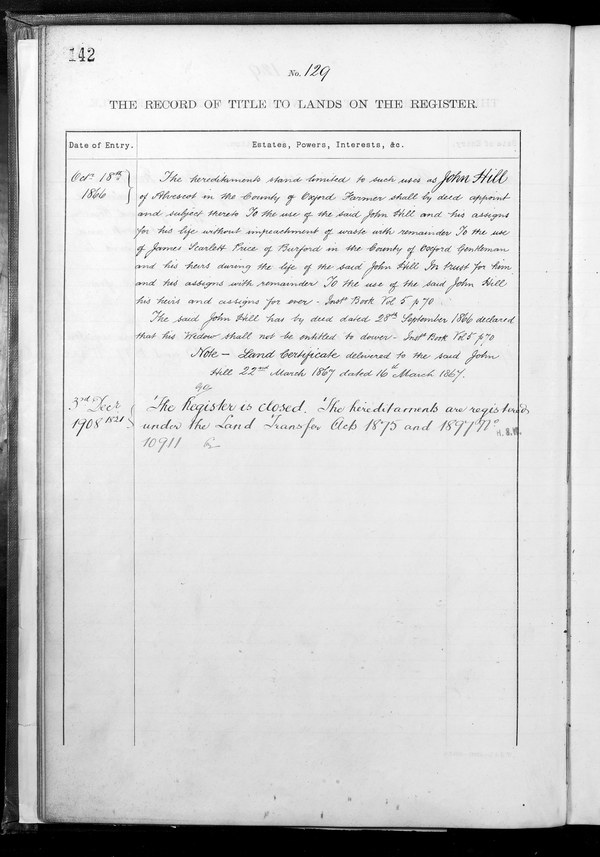 142
No. 129
THE RECORD OF TITLE TO LANDS ON THE REGISTER.
Date of Entry.
Estates, Powers, Interests, &c.
Octr 18th
1866
The hereditaments stand limited to such uses as John Hill
of Alvescot in the County of Oxford Farmer shall by deed appoint
and subject thereto To the use of the said John Hill and his assigns
for his life without impeachment of waste with remainder To the use
of James Scarlett Price of Burford in the County of Oxford Gentleman
and his heirs during the life of the said John Hill In trust for him
and his assigns with remainder To the use of the said John Hill
his heirs and assigns for ever - Instt Book Vol 5 p 70
The said John Hill has by deed dated 28th September 1866 declared
that his Widow shall not be entitled to dower - Instt Book Vol 5 p 70
Note - Land Certificate delivered to the said John
Hill 22nd March 1867 dated 16th March 1867.
3rd Decr
1908 1821
The Register is closed. The hereditaments are registered
under the Land Transfer Acts 1875 and 1897 No
10911